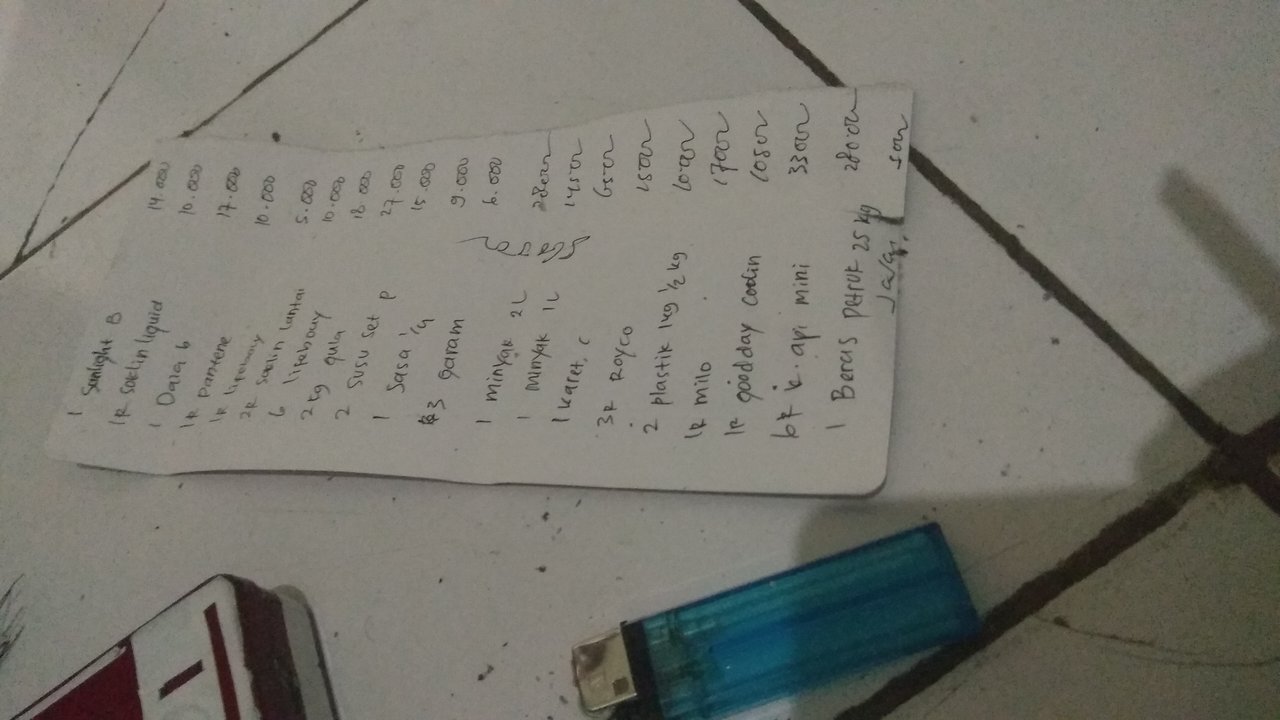 1 Sunlight B 14.000
1R Soklin liquid 10.000
1 Daia b 17.000
1R Pantene 10.000
1R lifebuoy 5.000
2R Soklin lantai 10.000
6 lifebouy 18.000
2 kg gula 27.000
2 susu set P 15.000
1 Sasa 1/4 9.000
3 garam 6.000
1 minyak 2L 28000
1 minyak 1L 14500
1 karet. c 6500
3R Royco 15000
2 plastik 1kg 1/2 kg 10000
1R milo 17000
1R goodday coolin 10500
6R k. api mini 33000
1 Beras petruk 25 kg 280000